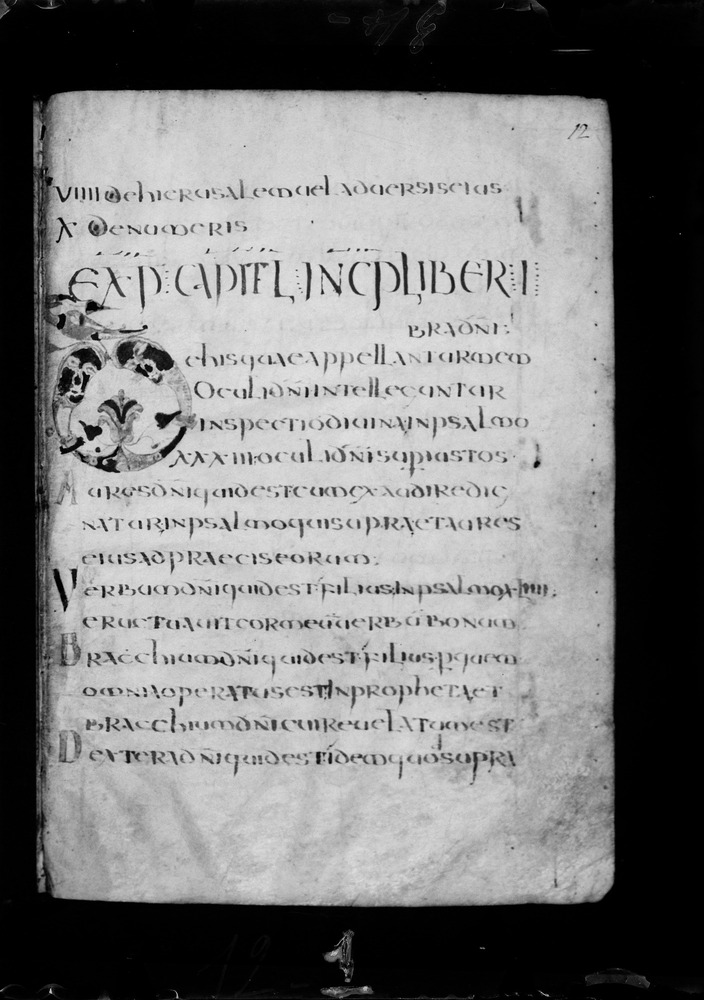 VIIII De hierusalem uel aduersis eius
X De numeris
EXP CAPITL INCP LIBER I
BRA DN̄I:
De his quae appellantur mem
Oculi dn̄i intellecuntur
inspectio diuina in psalmo
XXXIII oculi dn̄i sup iustos
Aures dn̄i quid est cum exaudire dig
natur in psalmo qui supra et aures
eius ad praecis eorum:
Verbum dn̄i quid est filius in psalmo XLIIII.
eructuauit cor meū uerbū bonum
Bracchium dn̄i quid est filius p quem
omnia operatus est In propheta et
bracchium dn̄i cui reuelatum est
Dextera dn̄i quid est idem quod supra
12